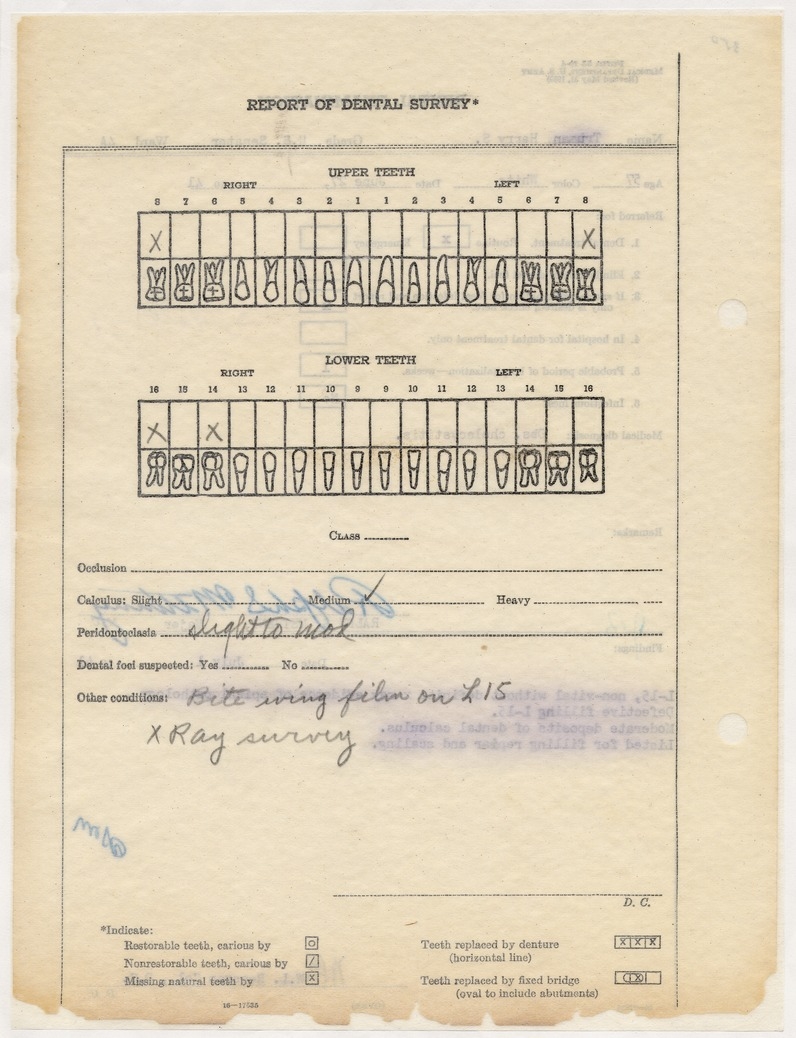 REPORT OF DENTAL SURVEY*
UPPER TEETH
RIGHT LEFT
8 7 6 5 4 3 2 1 1 2 3 4 5 6 7 8
X X
LOWER TEETH
RIGHT LEFT
16 15 14 13 12 11 10 9 9 10 11 12 13 14 15 16
X X
CLASS
Occlusion
Calculus: Slight Medium ✓ Heavy
Peridontoclasia slight to mod
Dental foci suspected: Yes No
Other conditions: Bite wing film on L 15
X Ray survey
D. C.
*Indicate:
Restorable teeth, carious by O
Nonrestorable teeth, carious by /
Missing natural teeth by X
Teeth replaced by denture X X X
(horizontal line)
Teeth replaced by fixed bridge
(oval to include abutments)
16—17535